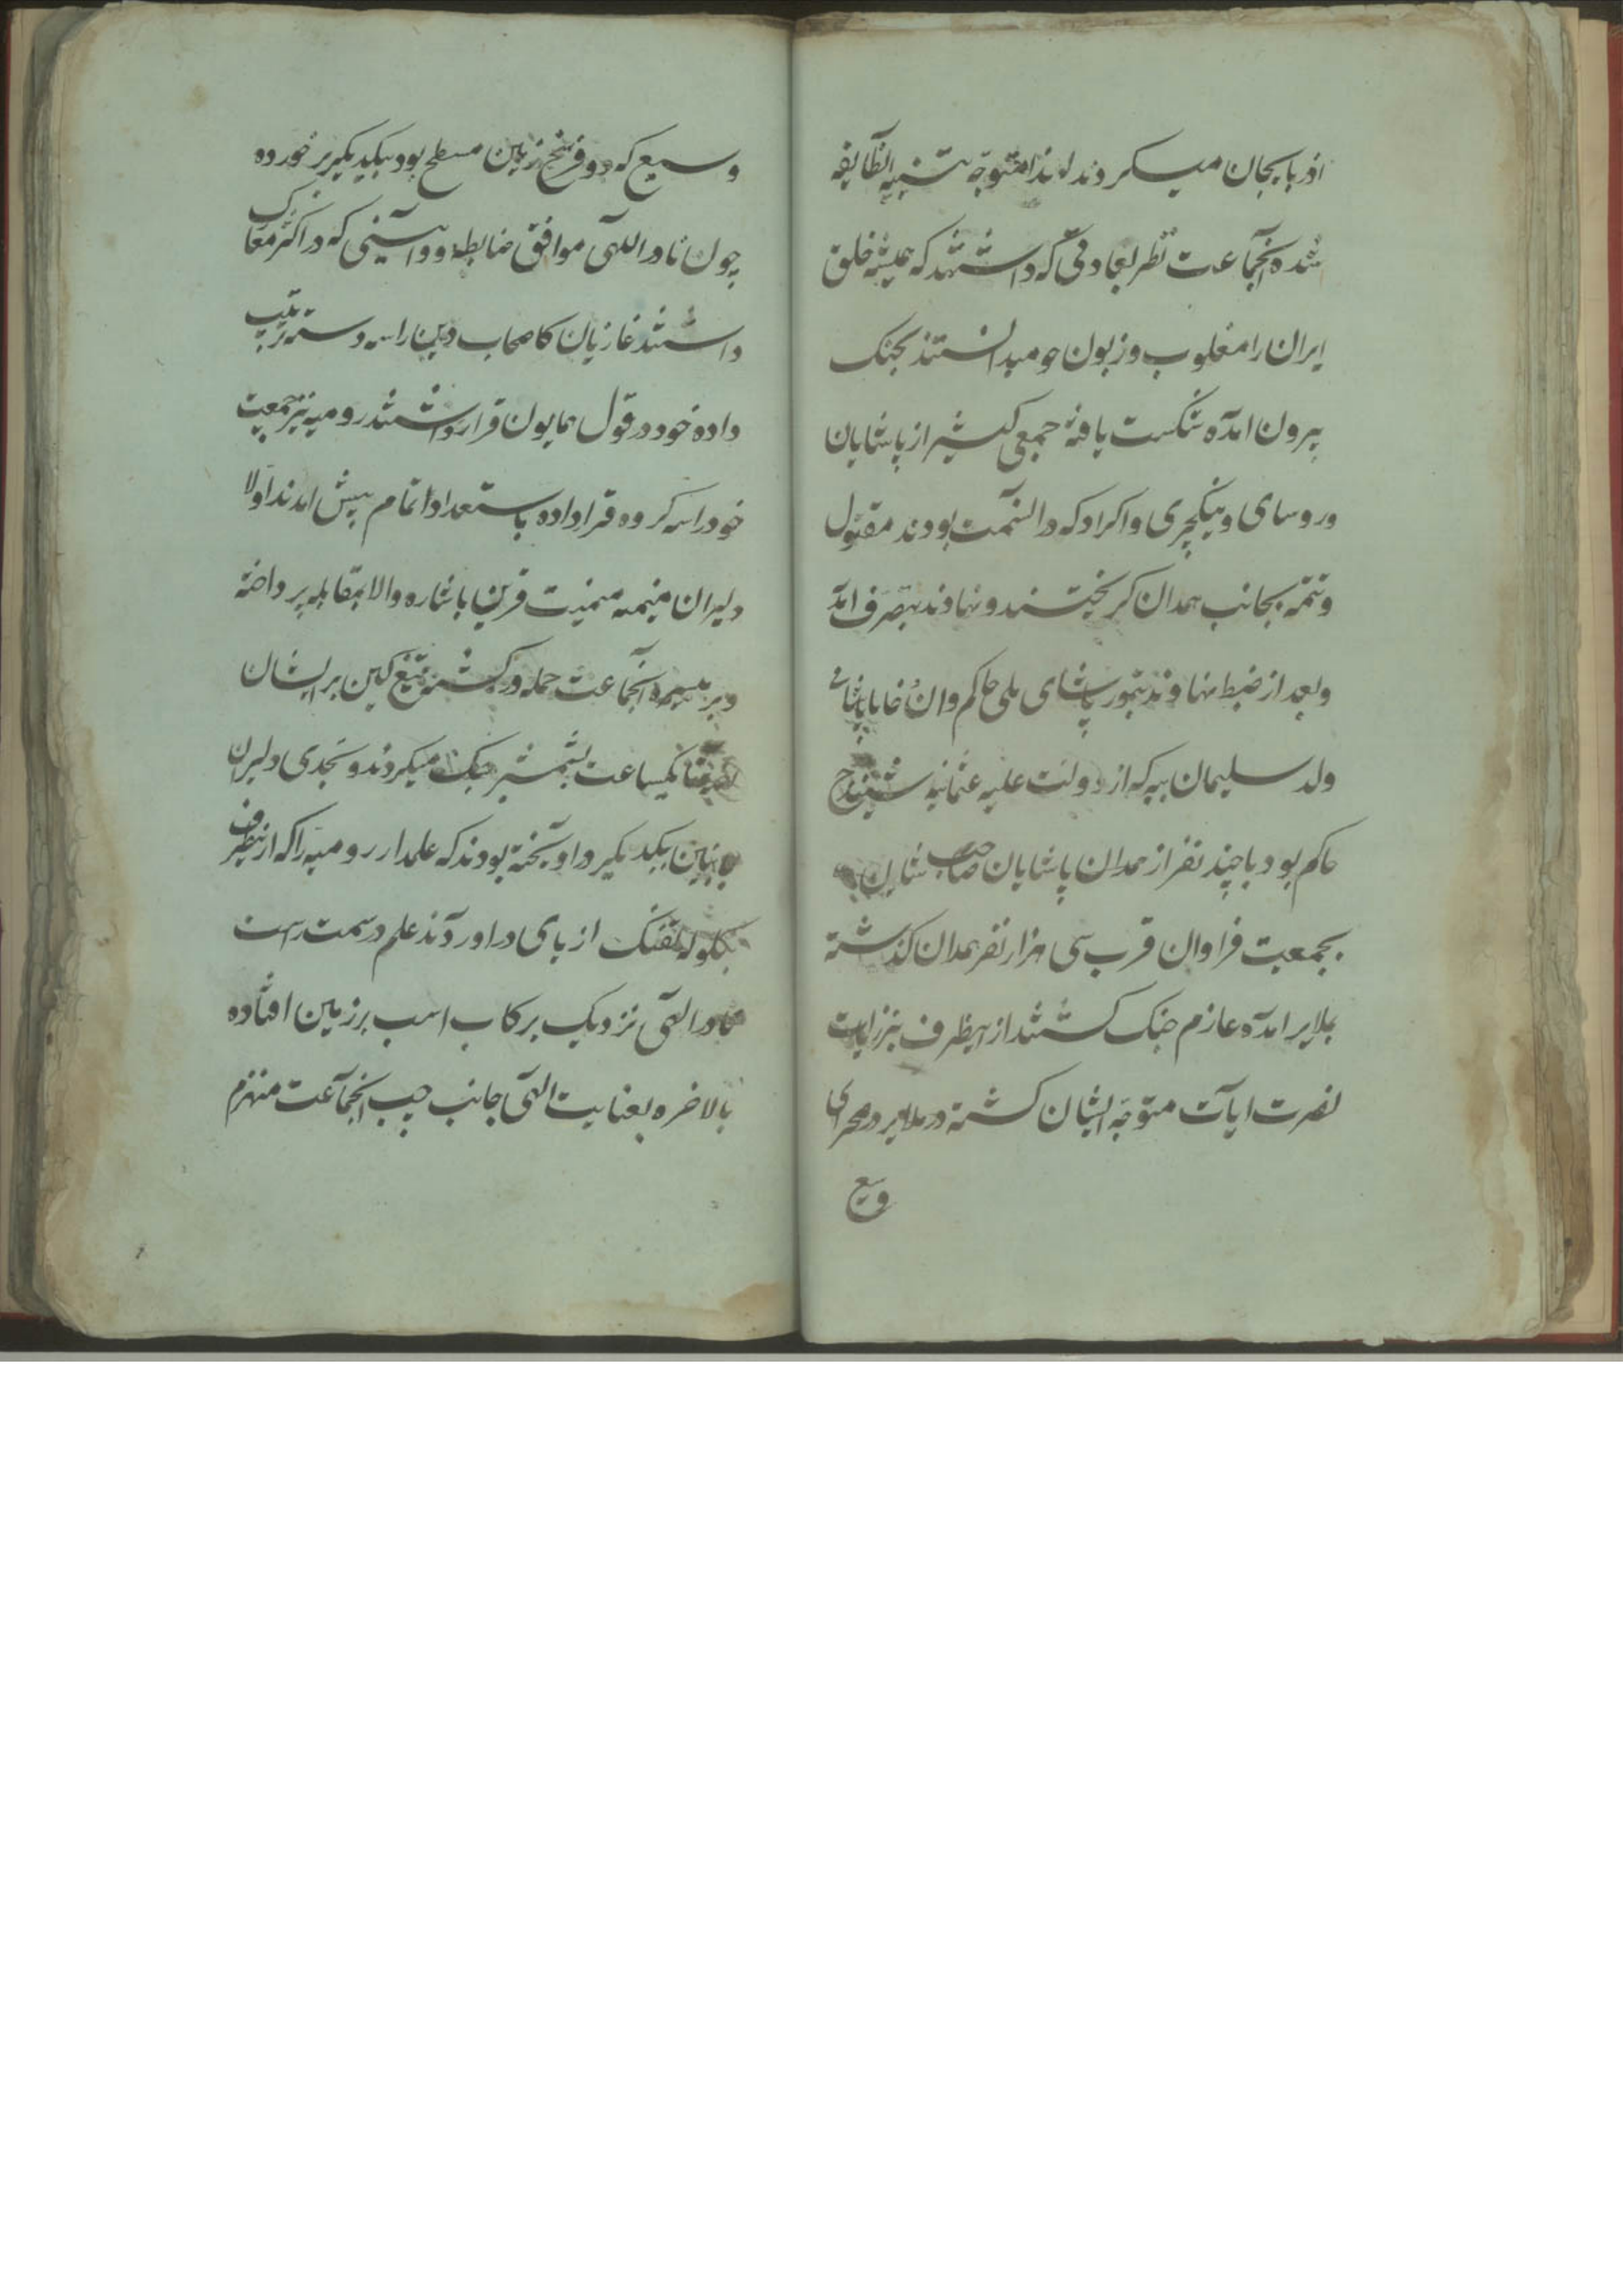 اذربایجان میکردند لهذا متوجه تنبیه انطایفه
شده انجماعت نظر بعادتی که داشتند که همیشه خلق
ایران را مغلوب و زبون خو میدانستند بجنک
بیرون امده شکست یافته جمعی کثیر از پاشایان
و روسای و ینکچری و اکراد که در انسمت بودند مقتول
و تتمه بجانب همدان کریختند و نهاوند بتصرف امد
و بعد از ضبط نهاوند تیمور پاشای ملی حاکم وان خانا پاشای
ولد سلیمان ببه که از دولت علیه عثمانیه سنندج
حاکم بود با چند نفر از همدان پاشایان صاحب شان
بجمعیت فراوان قرب سی هزار نفر همدان کذشته
بملایر امده عازم جنک کشتند از اینطرف نیز رایت
نصرت ایات متوجه ایشان کشته در ملایر در صحرای
وسیع
وسیع که دو فرسخ زمین مسطح بود بیکدیکر بر خورده
چون نادر اللهی موافق ضابطه و آئینی که در اکثر معارک
داشتند غازیان کاصحاب دین را سه دسته ترتیب
داده خود در قول همایون قرار داشتند رومیه نیز جمعیت
خود را سه کروه قرار داده باستعداد تمام پیش امدند اولا
دلیران میمنه میمنت قرین باشاره والا بمقابله پرداخته
و بر میسره انجماعت حمله ور کشته تیغ کین بر ایشان
یکساعت بشمشیر جنک میکردند و بحدی دلیران
بیکدیکر در اویخته بودند که علمدار رومیه را که از اینطرف
بکلوله تفنک از پای در اوردند علم در سمت راست
نادر الهی نزدیک بر کاب اسب بر زمین افتاده
بالاخره بعنایت الهی جانب چپ انجماعت منهزم